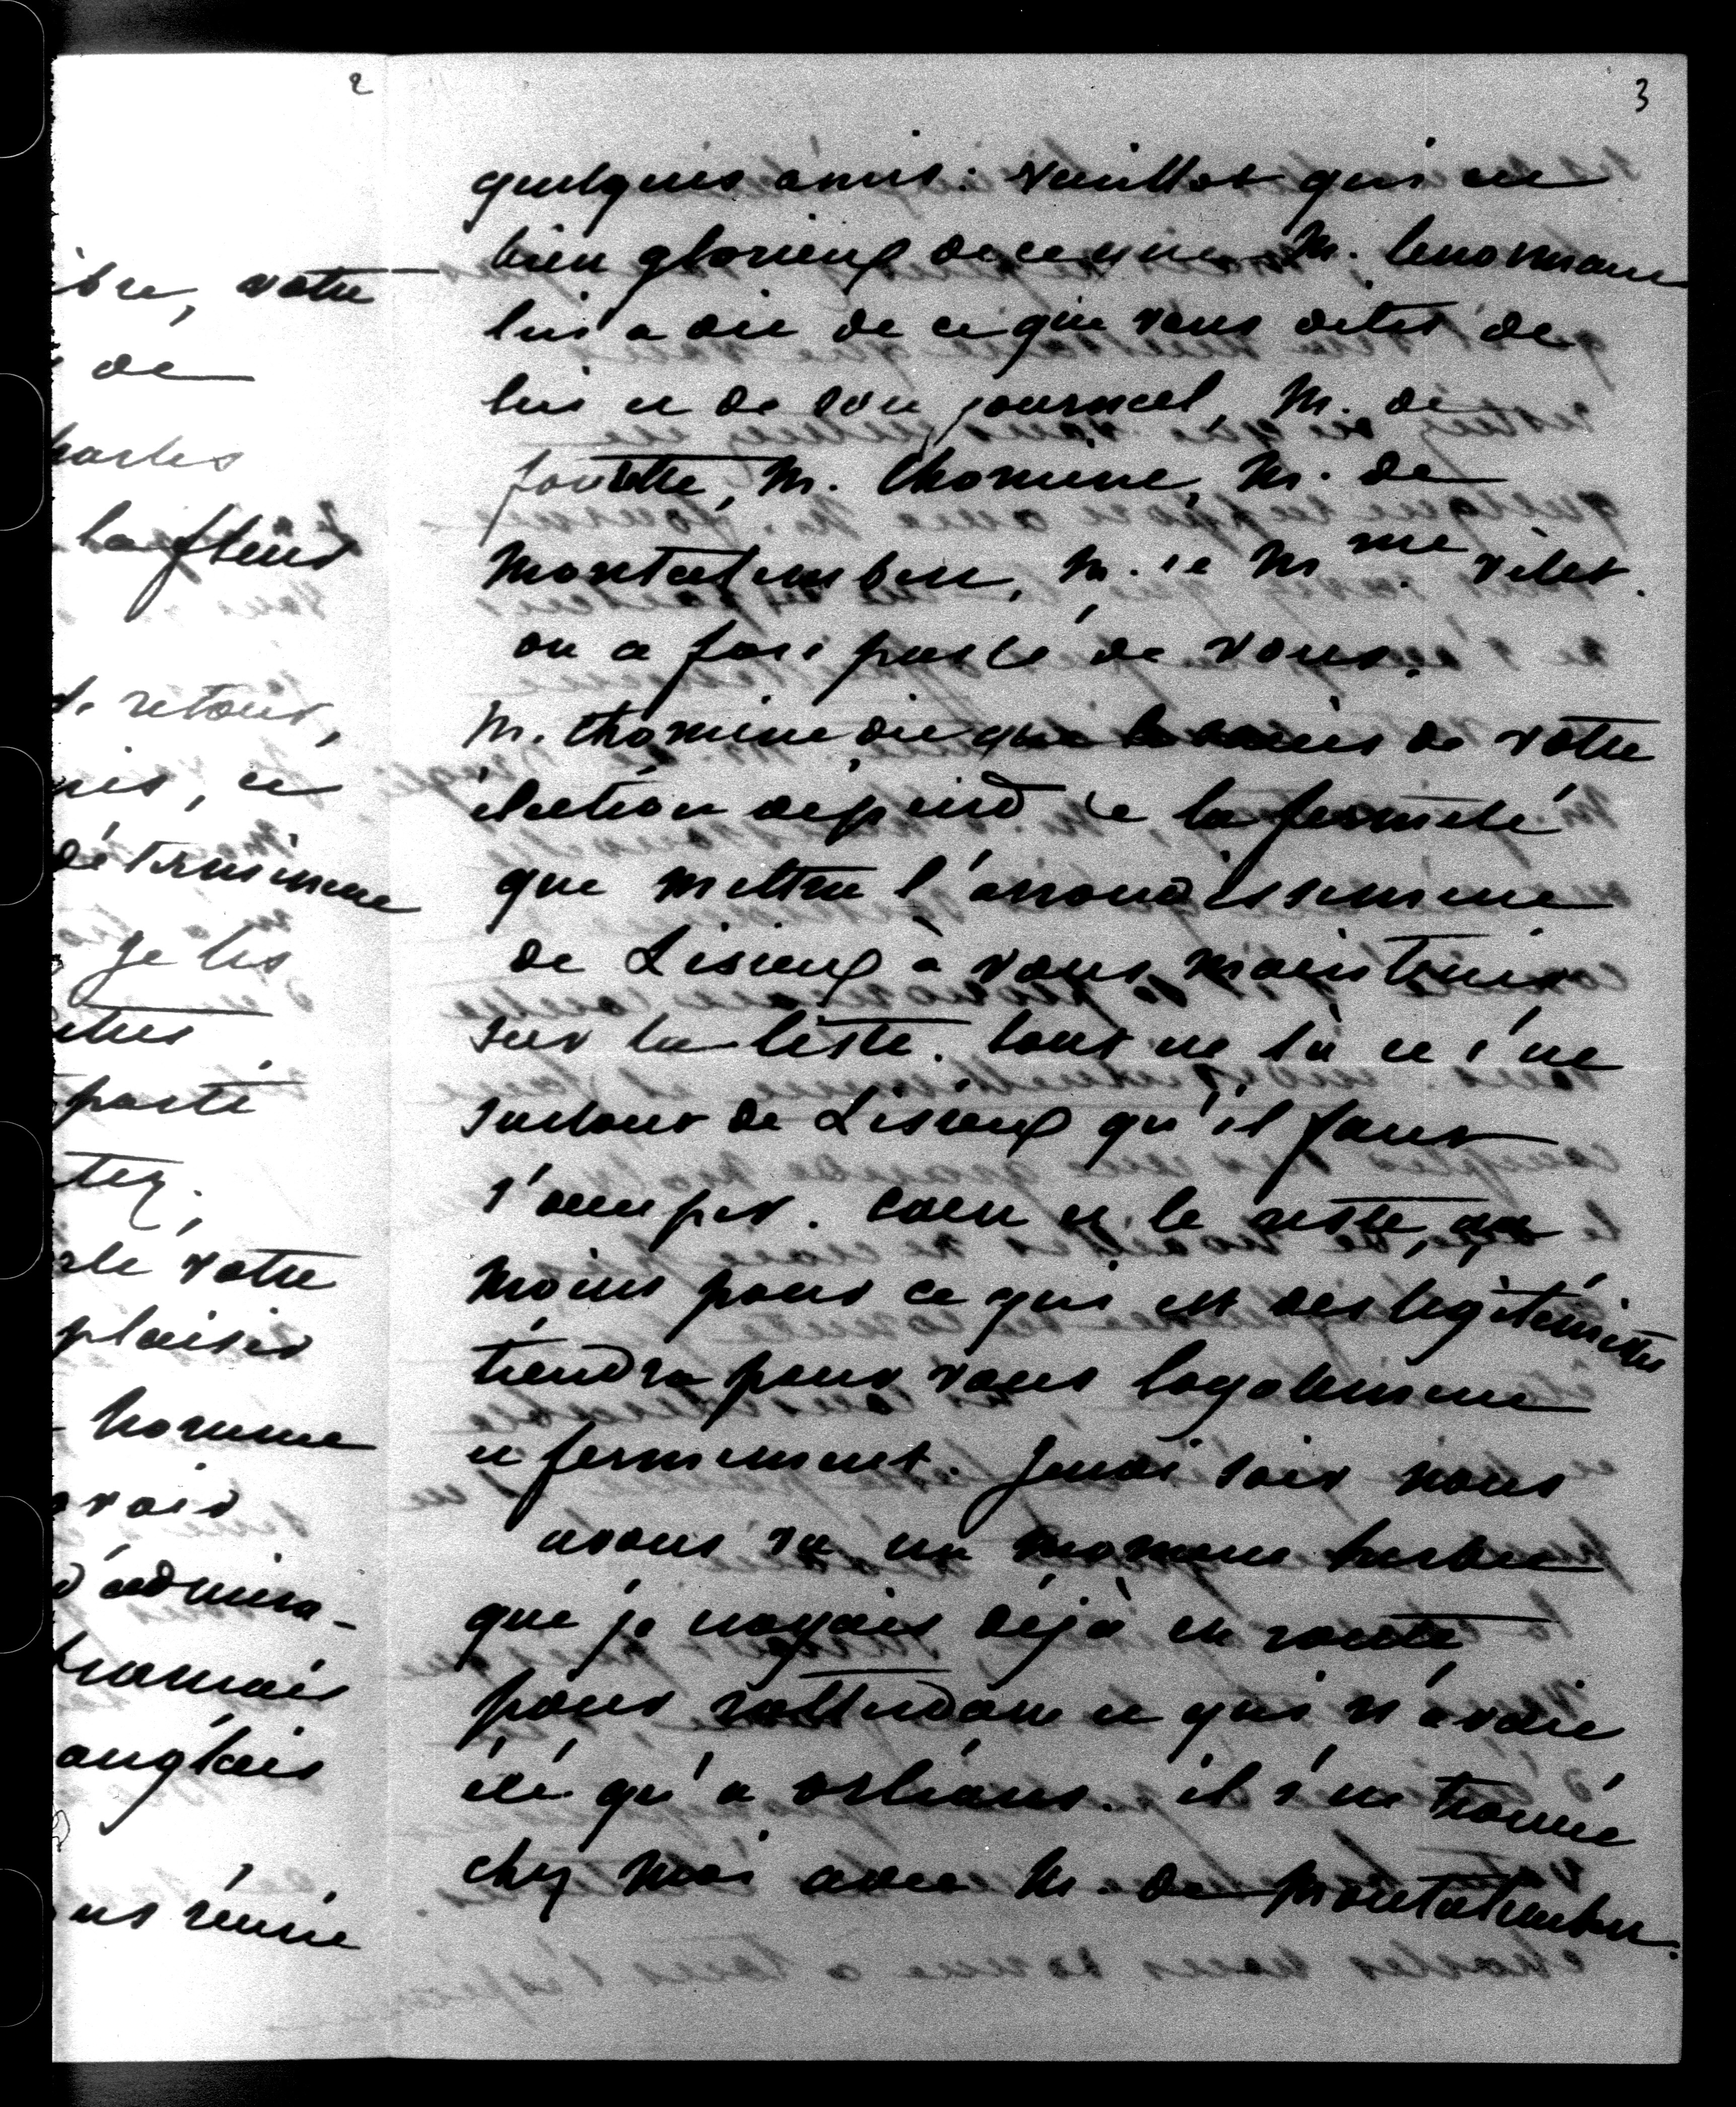 2
bre, votre
de
harles
la fleur
de retour,
mis, et
déterminent
je les
utres
parti
tez.
rlé votre
plaisir
homme
voir
d'admira-
français
anglais
ous réunir
3
quelques amis. Veuillot qui est
bien glorieux de ce que M. lenormant
lui a dit de ce que vous dites de
lui et de son journal, M. de
M. thomine, M. de
Montalembert, M. et Mme
on a fort parlé de vous.
M. thomine dit que le succès de votre
élection dépend de la fermeté
que mettra l'arrondissement
de Lisieux à vous maintenir
sur la liste. tout est là et c'est
surtout de Lisieux qu'il faut
s'occuper. Caen et le reste, au
moins pour ce qui est des légitimistes
tiendra pour vous loyalement
et fermement. Jeudi soir nous
avons vu un moment
que je croyais déjà en route
pour rotterdam et qui n'avait
été qu'à orléans. il s'est trouvé
chez moi avec M. de Montalembert.